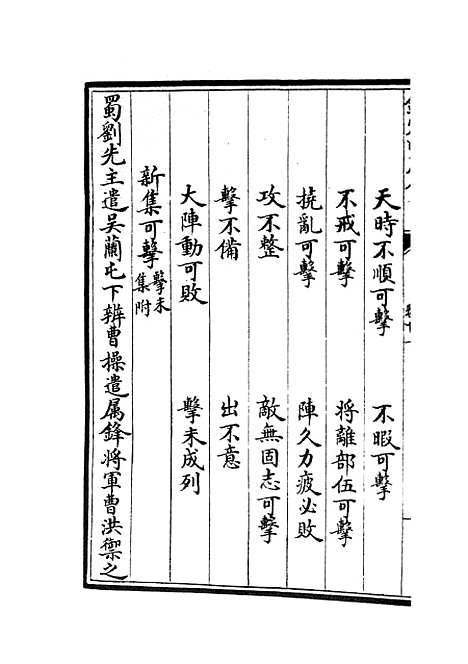 天時不順可擊　不暇可擊
不戒可擊　將離部伍可擊
撓亂可擊　陣久力疲必敗
攻不整　敵無固志可擊
擊不備　出不意
大陣動可敗　擊未成列
新集可擊擊未集附
蜀劉先主遣吳蘭屯下辨曹操遣属鋒將軍曹洪禦之